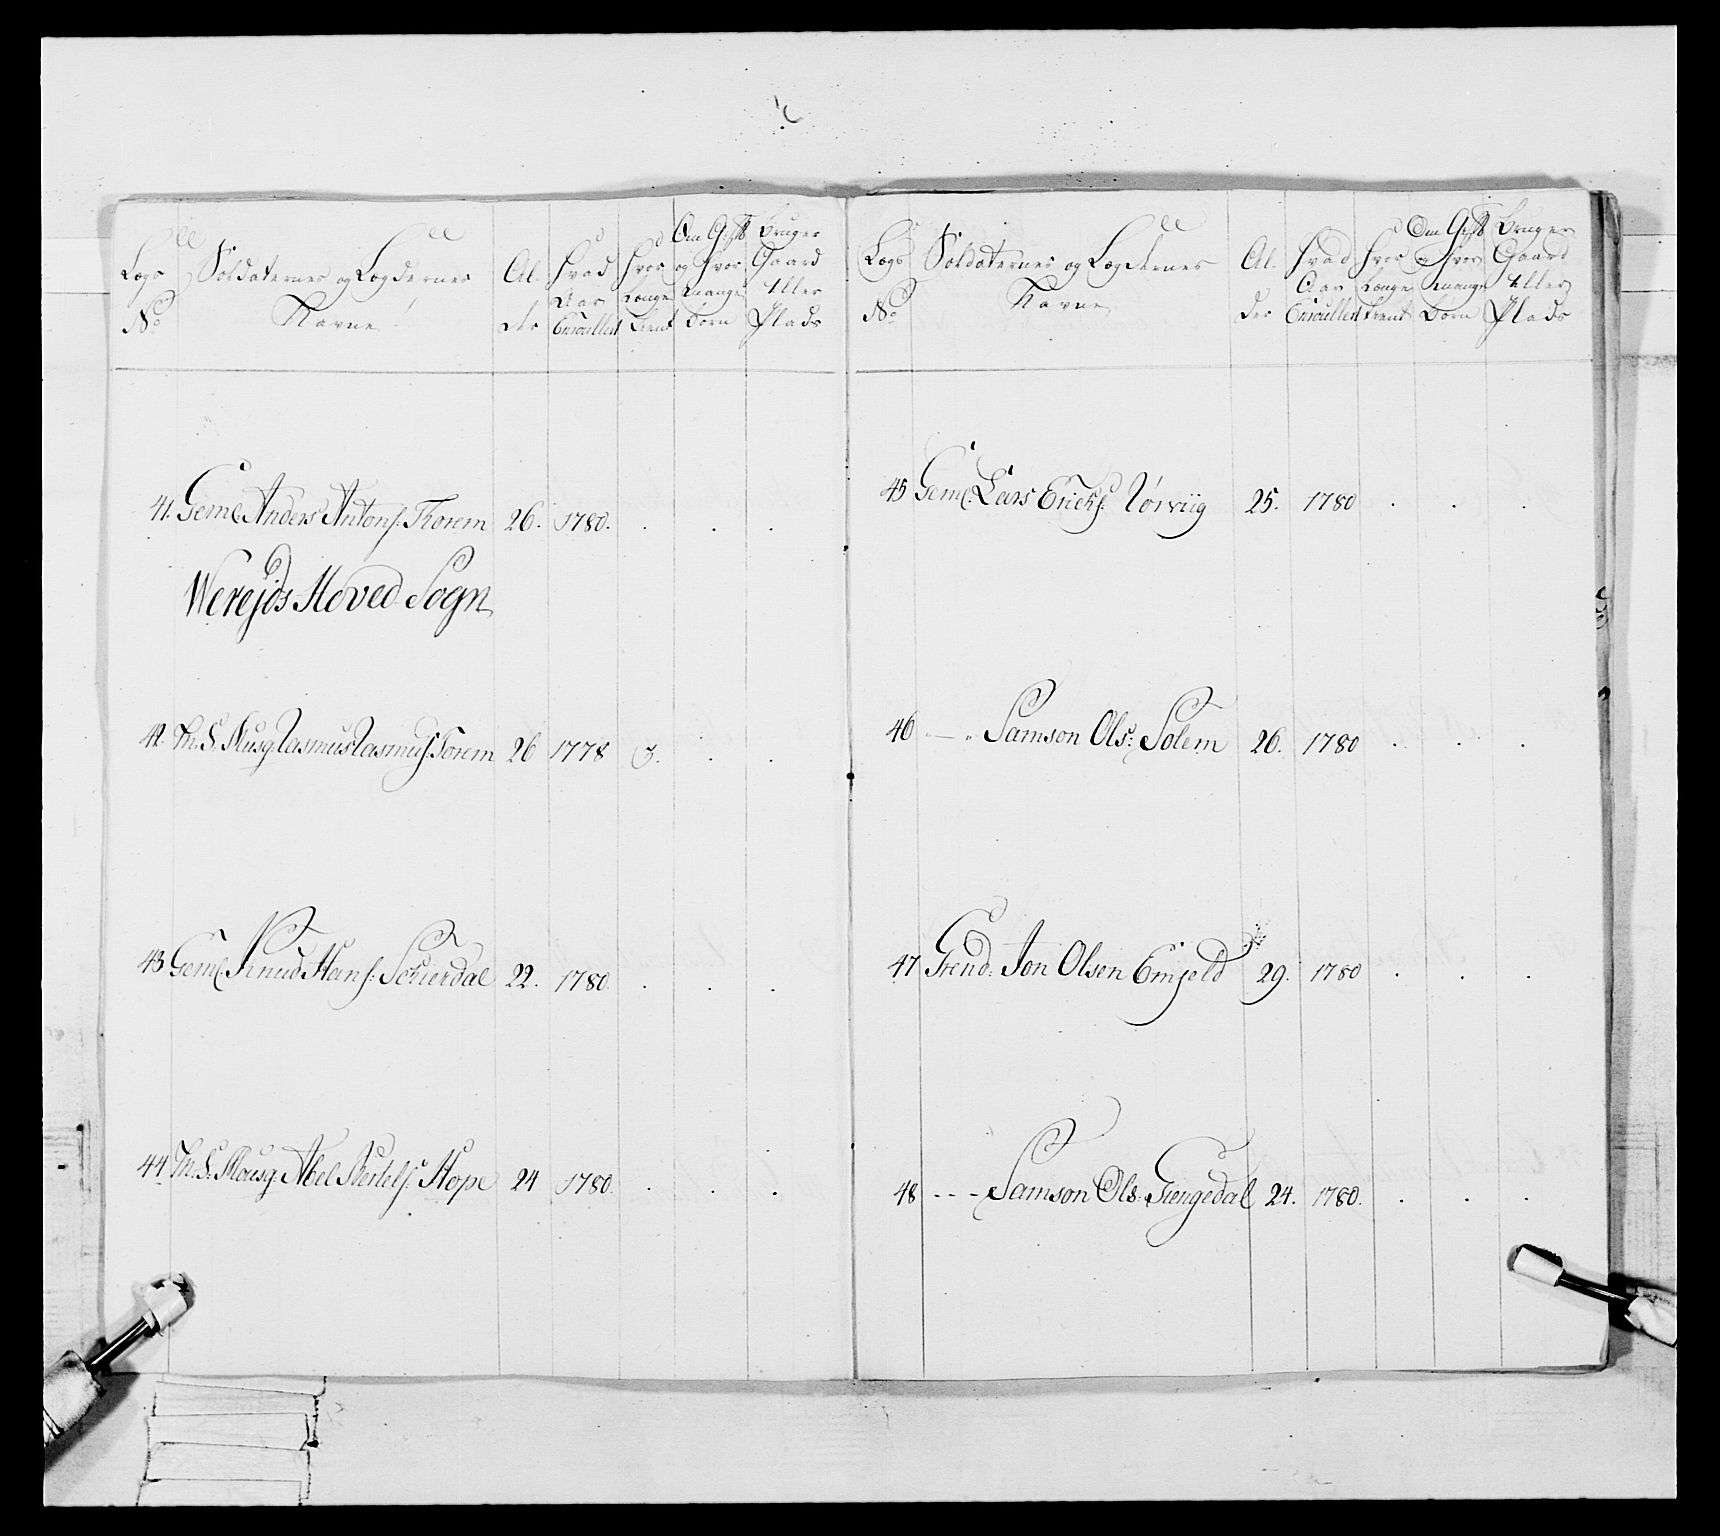 Lægs No
Soldaternes og Lægdernes Navne
Alder
Hvad Aar Enroulleret
Hvor Længe tient
Om Gift og hvor mange Børn
Bruger Gaard Eller Plads
41. Geml: Anders Antons: Thorem 26. 1780. . . .
Werejds Hoved Sogn
42. Th. S. Musq Rasmus Rasmus: Torem 26 1778 3. . .
43 Geml: Knud Hans: Schierdal 22. 1780. . . .
44 Th. S. Mousq: Abel Bertels: Hope 24 1780. . . .
Lægs No
Soldaternes og Lægdernes Navne
Alder
Hvad Aar Enroullert
Hvor Længe tient
Om Gift og hvor mange Børn
Bruger Gaard Eller Plads
45 Geml: Lars Ericks: Nørviig 25. 1780 . . .
46 — „ Samson Ols: Solem 26. 1780 . . .
47 Grend: Jon Olsen Emjeld 29. 1780 . . .
48 - - - Samson Ols: Giengedal 24. 1780. . . .